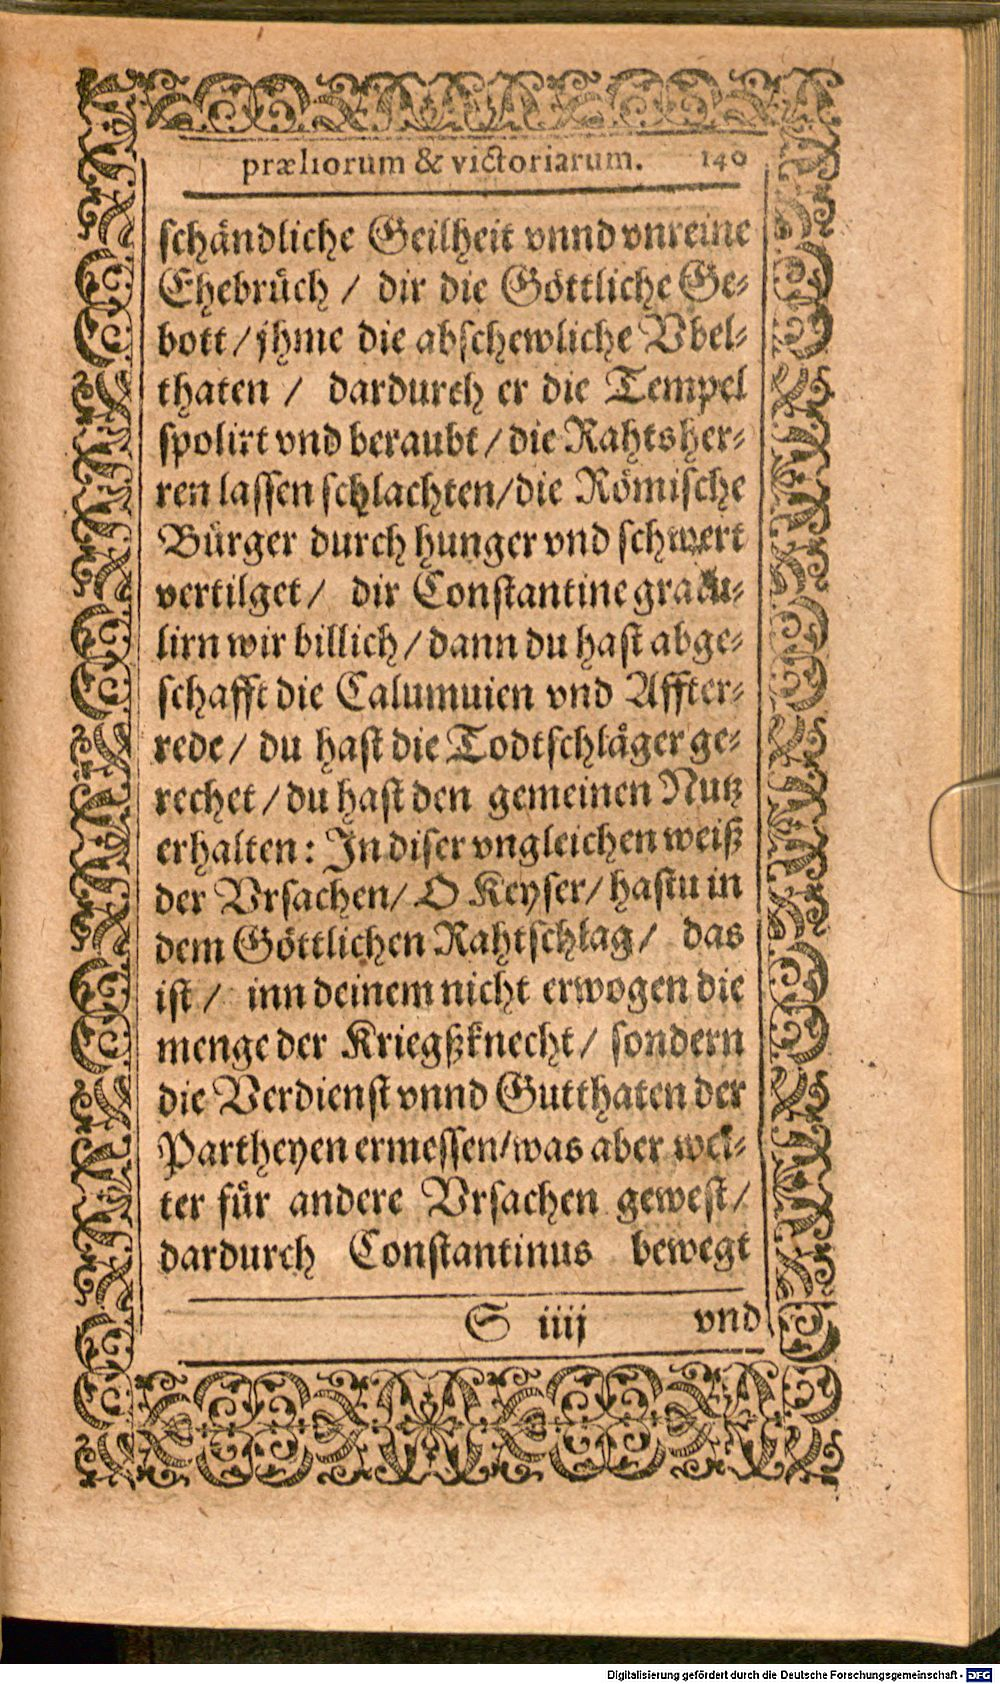 præliorum & victoriarum. 140
schändliche Geilheit vnnd vnreine
Ehebrüch / dir die Göttliche Ge-
bott / jhme die abschewliche Vbel-
thaten / dardurch er die Tempel
spolirt vnd beraubt / die Rahtsher-
ren lassen schlachten / die Römische
Bürger durch hunger vnd schwert
vertilget / dir Constantine gratu-
lirn wir billich / dann du hast abge-
schafft die Calumuien vnd Affter-
rede / du hast die Todtschläger ge-
rechet / du hast den gemeinen Nutz
erhalten: In diser vngleichen weiß
der Vrsachen / O Keyser / hastu in
dem Göttlichen Rahtschlag / das
ist / inn deinem nicht erwogen die
menge der Kriegßknecht / sondern
die Verdienst vnnd Gutthaten der
Partheyen ermessen / was aber wei-
ter für andere Vrsachen gewest /
dardurch Constantinus bewegt
S iiij vnd
Digitalisierung gefördert durch die Deutsche Forschungsgemeinschaft - DFG